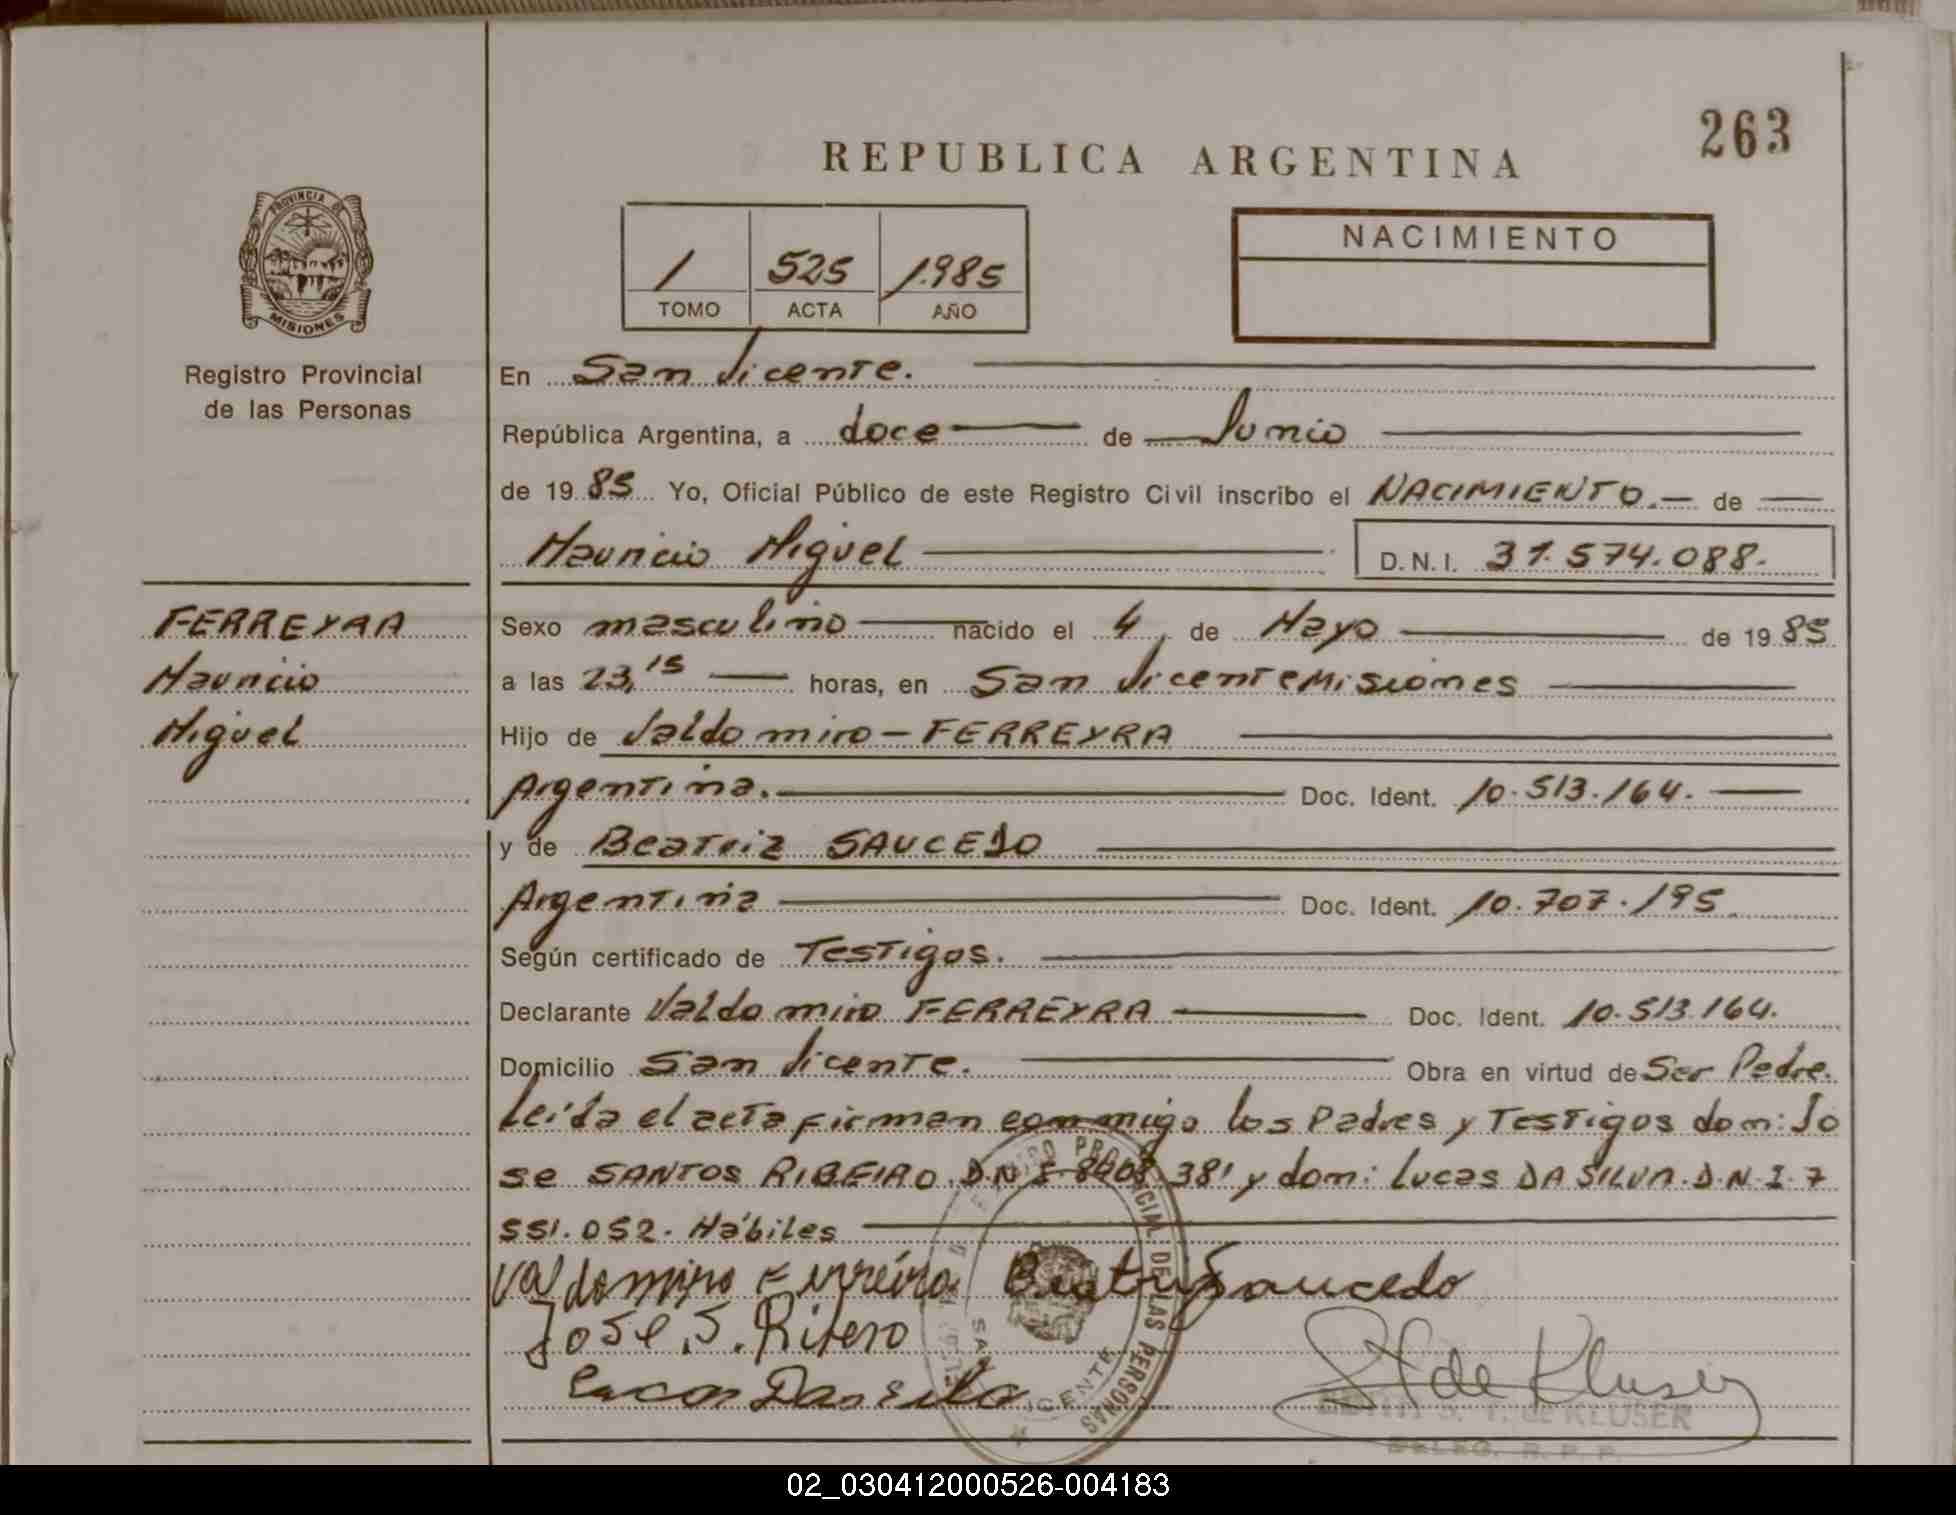 263
REPUBLICA ARGENTINA
PROVINCIA DE
MISIONES
Registro Provincial
de las Personas
1 525 1.985
TOMO ACTA AÑO
NACIMIENTO
En San Vicente.
República Argentina, a doce de Junio
de 1985 Yo, Oficial Público de este Registro Civil inscribo el NACIMIENTO.- de
Mauricio Miguel D.N.I. 31.574.088.
FERREYRA
Mauricio
Miguel
Sexo masculino nacido el 4 de Mayo de 1985
a las 23,15 horas, en San Vicente Misiones
Hijo de Valdomiro - FERREYRA
Argentina. Doc. Ident. 10.513.164.
y de Beatriz SAUCEDO
Argentina Doc. Ident. 10.707.195
Según certificado de Testigos.
Declarante Valdomiro FERREYRA Doc. Ident. 10.513.164.
Domicilio San Vicente. Obra en virtud de Ser Padre.
Leída el acta firman conmigo los Padres y Testigos don: Jo
se SANTOS RIBEIRO D.N.I. 381 y don: Lucas DA SILVA. D.N.I. 7
551.052. Hábiles
Valdomiro Ferreira Beatriz Saucedo
José S. Ribero
Lucas Da Silva
PROVINCIAL DE LAS PERSONAS
de Kluser
T. de KLUSER
DELEG. R. P. P.
02_030412000526-004183